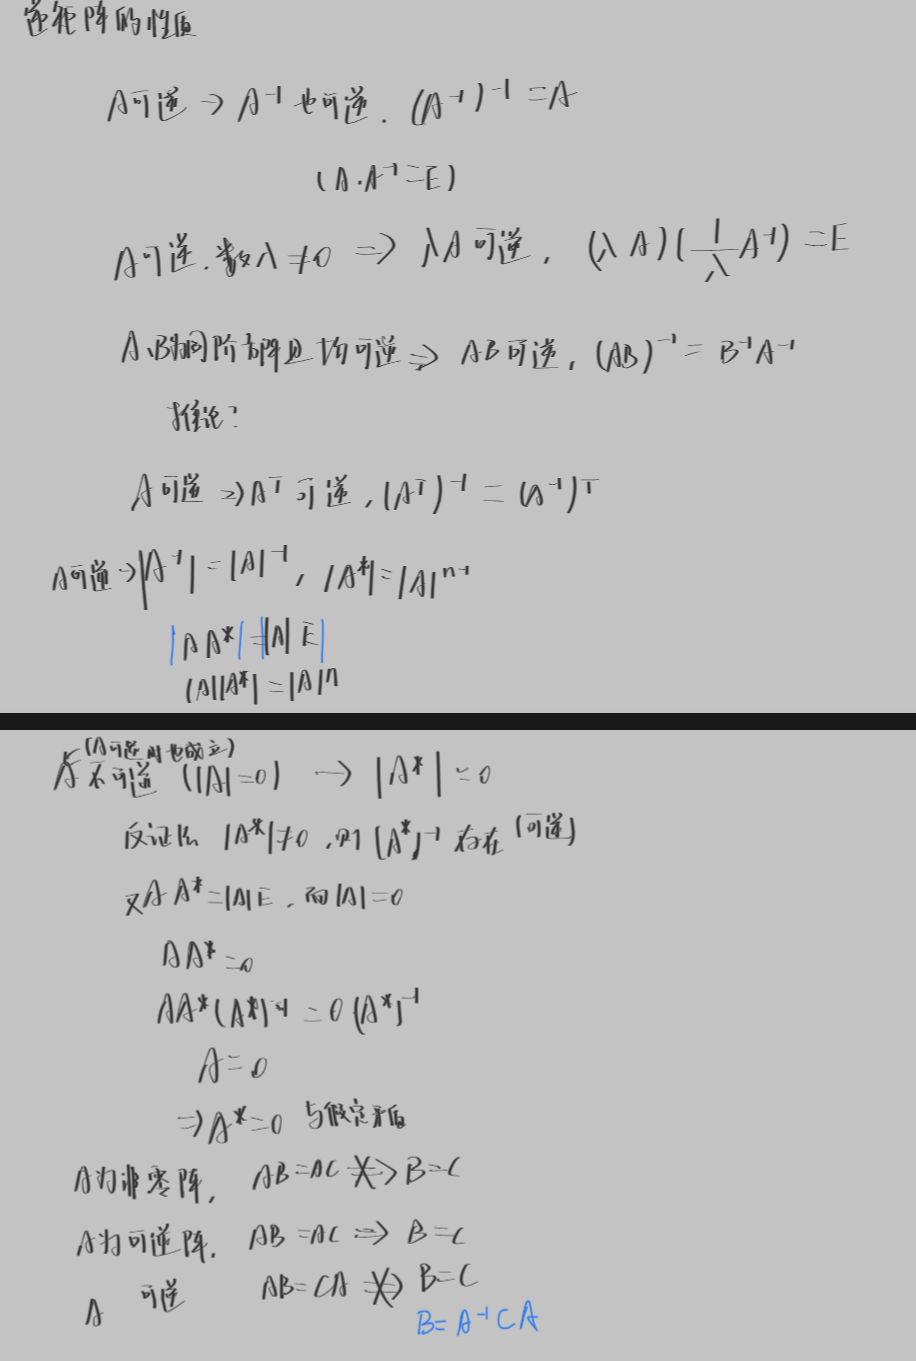 逆矩阵的性质
A可逆 → A⁻¹ 也可逆. (A⁻¹)⁻¹ = A
(A·A⁻¹=E)
A可逆.数λ≠0 ⇒ λA可逆, (λA)(1/λ A⁻¹) = E
A、B为同阶方阵且均可逆 ⇒ AB可逆, (AB)⁻¹ = B⁻¹A⁻¹
推论:
A可逆 ⇒ Aᵀ可逆, (Aᵀ)⁻¹ = (A⁻¹)ᵀ
A可逆 → |A⁻¹| = |A|⁻¹, |A*| = |A|ⁿ⁻¹
|AA*| = ||A|E|
|A||A*| = |A|ⁿ
(A可逆时也成立)
A不可逆 (|A|=0) → |A*| = 0
反证法 |A*|≠0, 则 (A*)⁻¹ 存在 (可逆)
又AA* = |A|E, 而|A|=0
AA* = 0
AA*(A*)⁻¹ = 0(A*)⁻¹
A = 0
⇒ A* = 0 与假定矛盾
A为非零阵, AB=AC ⇏ B=C
A为可逆阵, AB=AC ⇒ B=C
A 可逆 AB=CA ⇏ B=C
B=A⁻¹CA